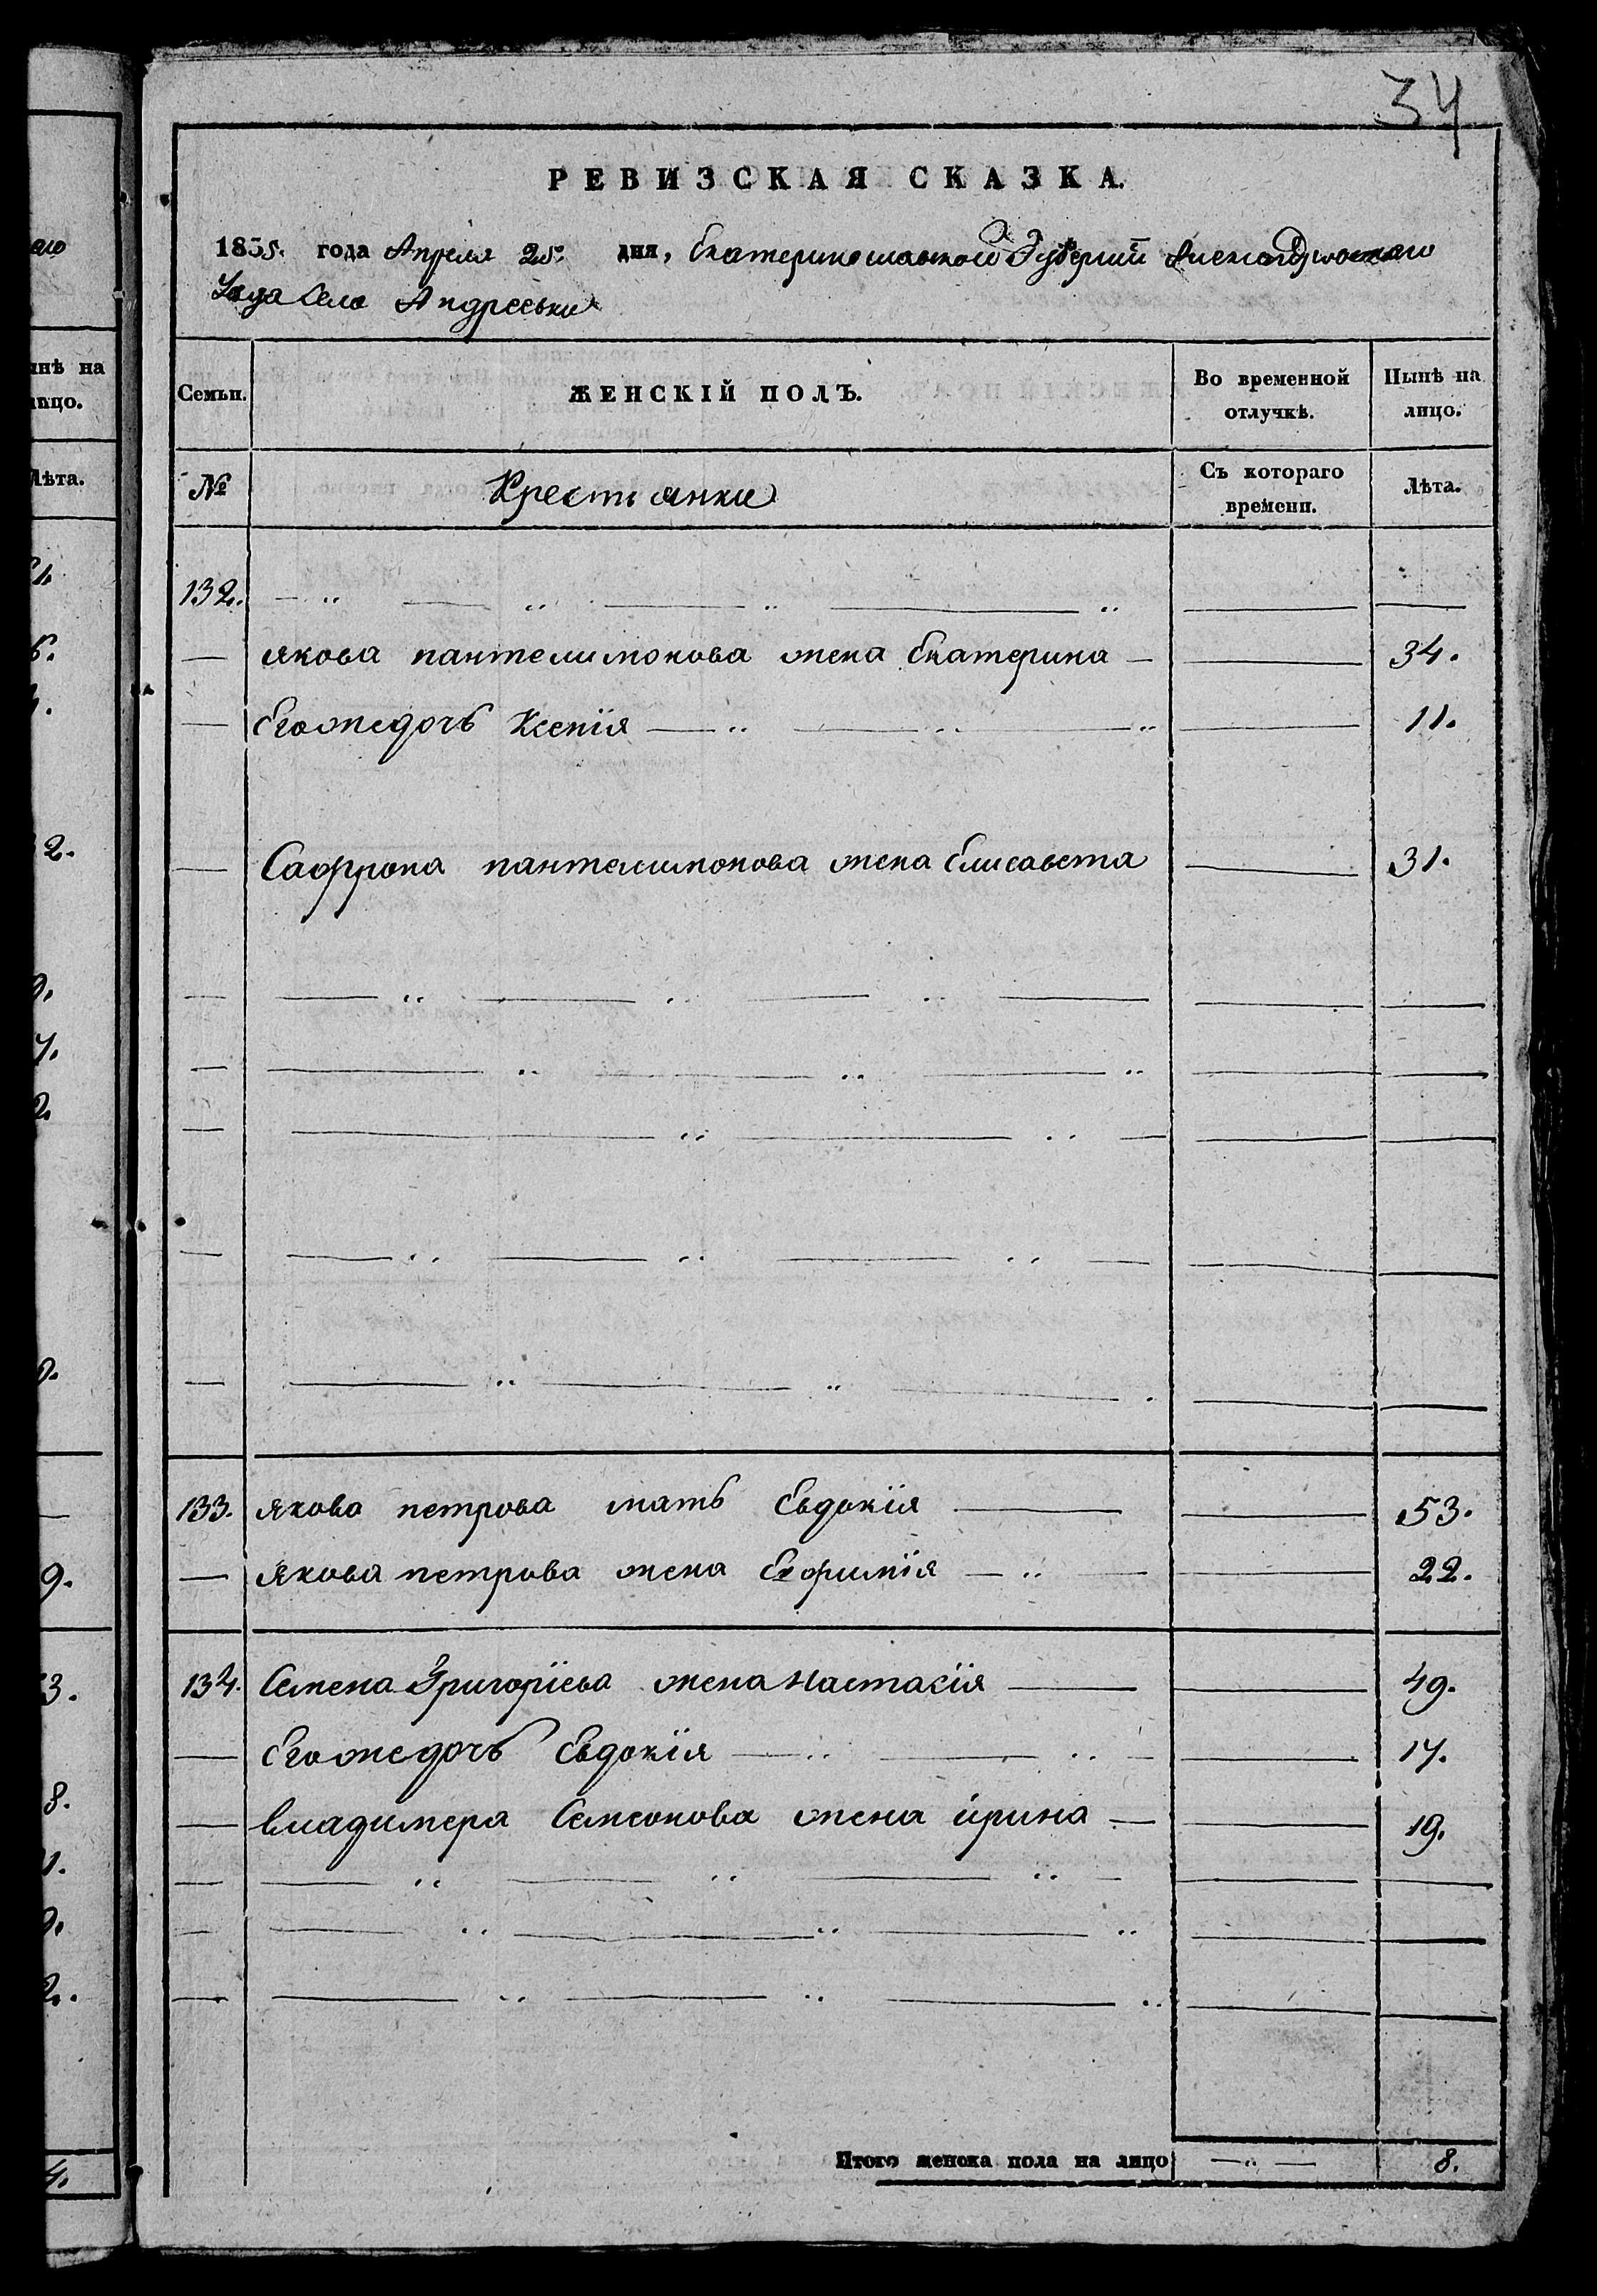 34
РЕВИЗСКАЯ СКАЗКА.
1835. года Апреля 25. дня, Екатеринославской Губерніи Александровскаго
Уезда Села Андреевки
Семьи. ЖЕНСКІЙ ПОЛЪ. Во временной отлучкѣ. Нынѣ на лицо.
№ Крестьянки Съ котораго времени. Лѣта.
132.
Якова пантелимонова жена Екатерина 34.
Егожедочь Ксенія 11.
Сафрона пантелимонова жена Елисавета 31.
133. Якова петрова мать Евдокія 53.
Якова петрова жена Ефимія 22.
134. Семена Григоріева жена Настасія 49.
Егожедочь Евдокія 17.
владимера Семеонова жена ирина 19.
Итого женска пола на лицо 8.